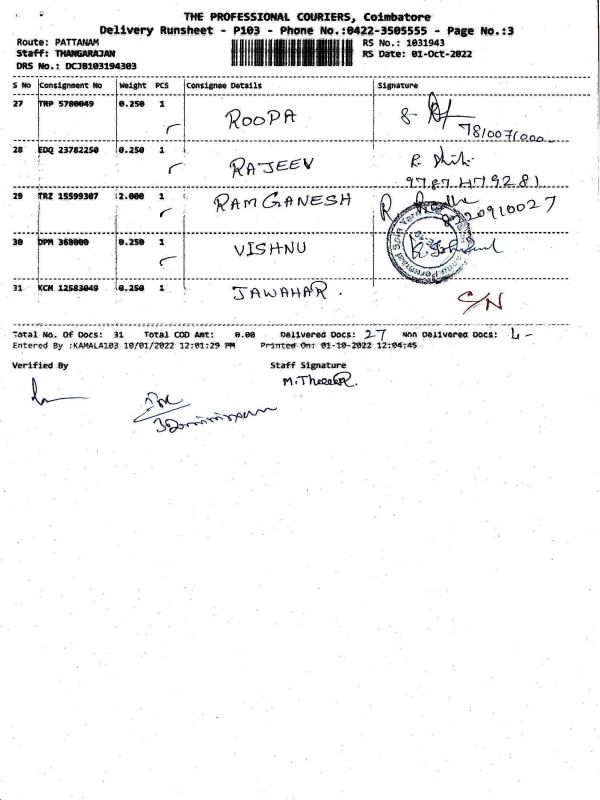 THE PROFESSIONAL COURIERS, Coimbatore
Delivery Runsheet - P103 - Phone No.:0422-3505555 - Page No.:3
Route: PATTANAM RS No.: 1031943
Staff: THANGARAJAN RS Date: 01-Oct-2022
DRS No.: DCJB103194303
S No Consignment No Weight PCS Consignee Details Signature
27 TRP 5780049 0.250 1 ROOPA
7810071000
28 EDQ 23782250 0.250 1 RAJEEV
9787479281
29 TRZ 15599307 2.000 1 RAMGANESH
30 DPM 368000 0.250 1 VISHNU
31 KCM 12583049 0.250 1 JAWAHAR. S/N
Total No. Of Docs: 31 Total COD Amt: 0.00 Delivered Docs: 27 Non Delivered Docs: 4
Entered By :KAMALA103 10/01/2022 12:01:29 PM Printed On: 01-10-2022 12:04:45
Verified By Staff Signature